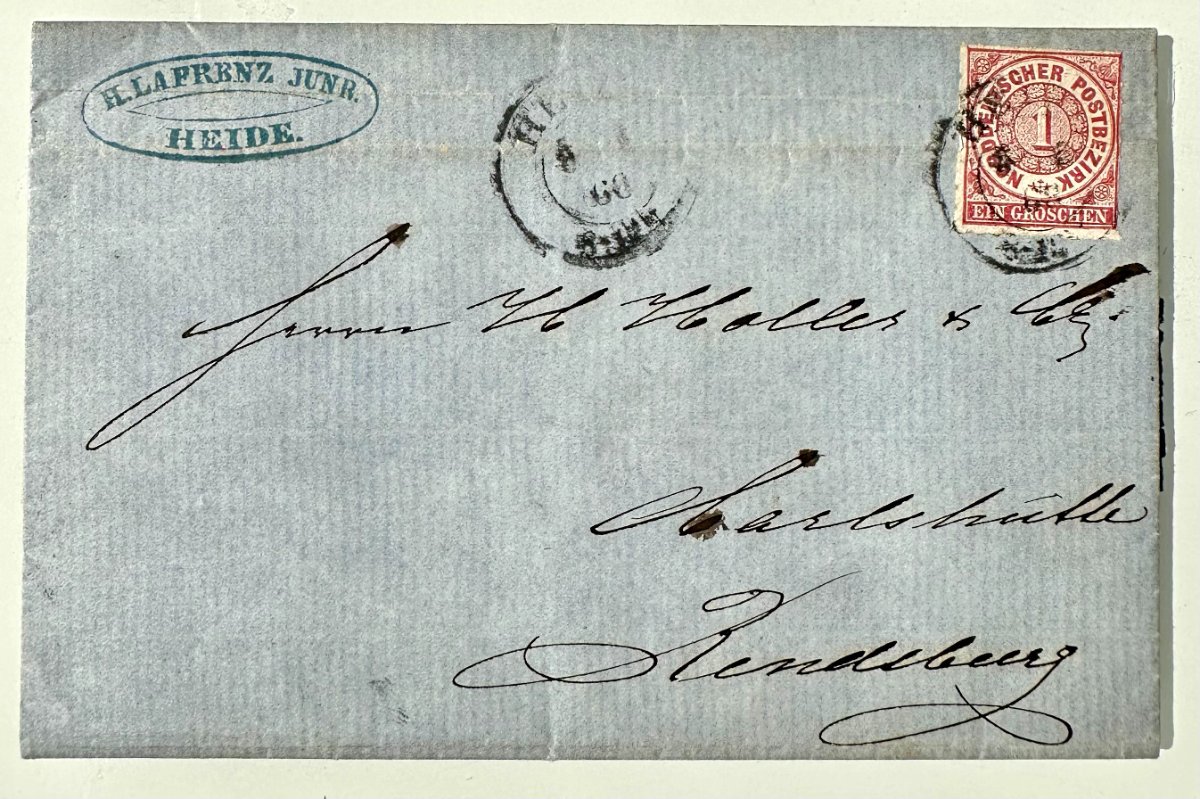 H. LAFRENZ JUNR.
HEIDE.
HE
60
NORDDEUTSCHER POSTBEZIRK
1
EIN GROSCHEN
Herrn H Holler & Co
Carlshütte
Rendsburg